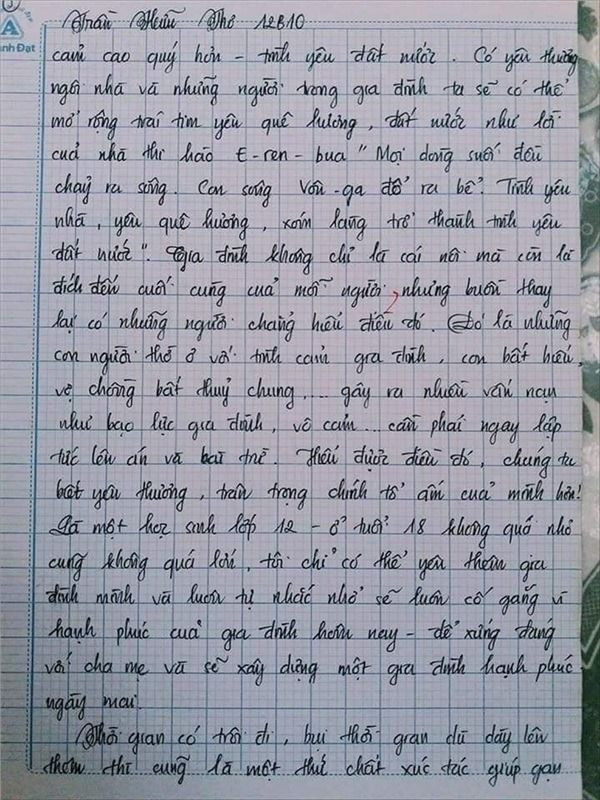 Trần Hữu Thơ 12B10
A
nh Đạt
cảm cao quý hơn - tình yêu đất nước. Có yêu thương
ngôi nhà và những người trong gia đình ta sẽ có thể
mở rộng trái tim yêu quê hương, đất nước như lời
của nhà thi hào E-ren-bua "Mọi dòng suối đều
chảy ra sông. Con sông Vôn-ga đổ ra bể. Tình yêu
nhà, yêu quê hương, xóm làng trở thành tình yêu
đất nước". Gia đình không chỉ là cái nôi mà còn là
đích đến cuối cùng của mỗi người, nhưng buồn thay
lại có những người chẳng hiểu điều đó. Đó là những
con người thờ ơ với tình cảm gia đình, con bất hiếu,
vợ chồng bất thuỷ chung.... gây ra nhiều vấn nạn
như bạo lực gia đình, vô cảm... cần phải ngay lập
tức lên án và bài trừ. Hiểu được điều đó, chúng ta
biết yêu thương, trân trọng chính tổ ấm của mình hơn!
Là một học sinh lớp 12 - ở tuổi 18 không quá nhỏ
cũng không quá lớn, tôi chỉ có thể yêu thêm gia
đình mình và luôn tự nhắc nhở sẽ luôn cố gắng vì
hạnh phúc của gia đình hôm nay - để xứng đáng
với cha mẹ và sẽ xây dựng một gia đình hạnh phúc
ngày mai.
Thời gian có trôi đi, bụi thời gian dù dày lên
thêm thì cũng là một thứ chất xúc tác giúp gạn